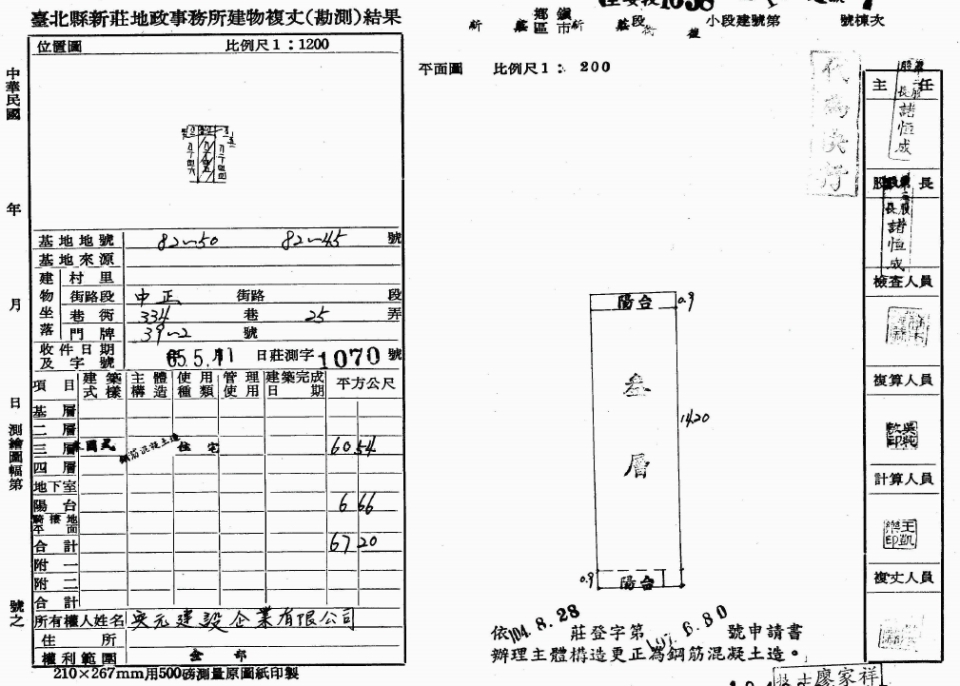 臺北縣新莊地政事務所建物複丈(勘測)結果
位置圖 比例尺1：1200
中華民國 年 月 日測繪圖幅第 號之
基地地號 82~50 82~45 號
基地來源
建物坐落
村里
街路段 中正 街路 段
巷衖 334 巷 25 弄
門牌 39~2 號
收件日期及字號 65.5.11 日莊測字1070號
項目 建築式樣 主體構造 使用種類 管理使用 建築完成日期 平方公尺
基層
二層
三層 本國式 鋼筋混凝土造 住宅 60 54
四層
地下室
陽台 6 66
騎樓地平面
合計 67 20
附一
附二
合計
所有權人姓名 建設企業有限公司
住所
權利範圍 全部
210×267mm用500磅測量原圖紙印製
新莊 鄉鎮區市 新莊段 小段建號第 號棟次
平面圖 比例尺1：200
代為決行
陽台 0.9
叁層
14.20
0.9 陽台
依104.8.28 莊登字第 號申請書
辦理主體構造更正為鋼筋混凝土造。
技士廖家祥
主任
諸恒成
股長
諸恒成
檢查人員
複算人員
計算人員
王凱印
複丈人員